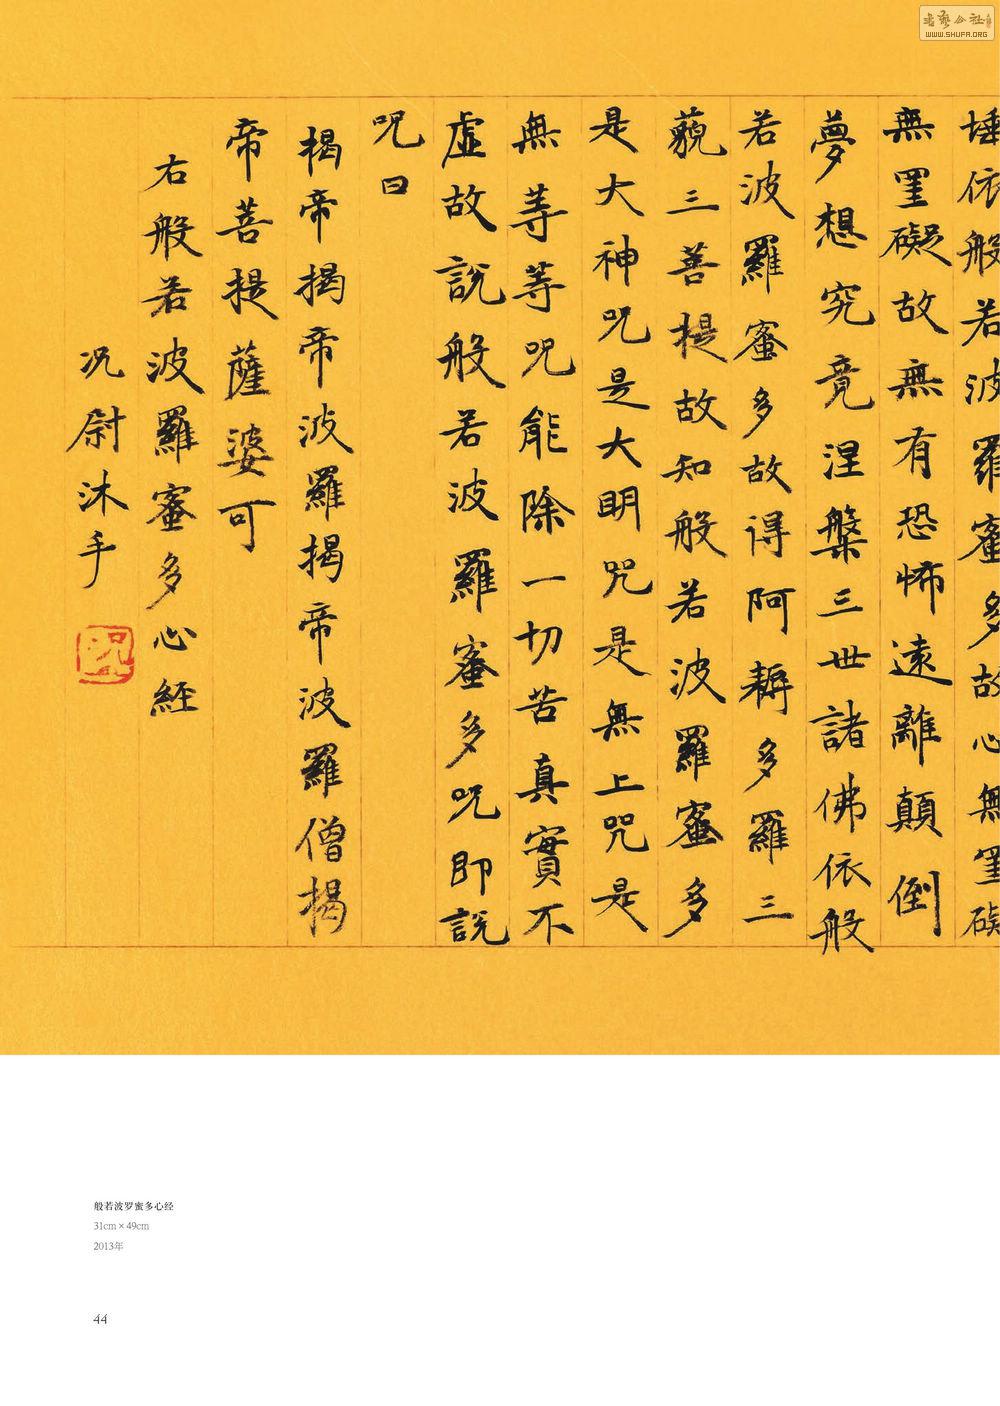 埵依般若波羅蜜多故心無罣礙
無罣礙故無有恐怖遠離顛倒
夢想究竟涅槃三世諸佛依般
若波羅蜜多故得阿耨多羅三
藐三菩提故知般若波羅蜜多
是大神呪是大明咒是無上咒是
無等等呪能除一切苦真實不
虛故說般若波羅蜜多呪即說
呪曰
揭帝揭帝波羅揭帝波羅僧揭
帝菩提薩婆可
右般若波羅蜜多心經
况尉沐手
般若波罗蜜多心经
31cm × 49cm
2013年
44
书艺公社
WWW.SHUFA.ORG